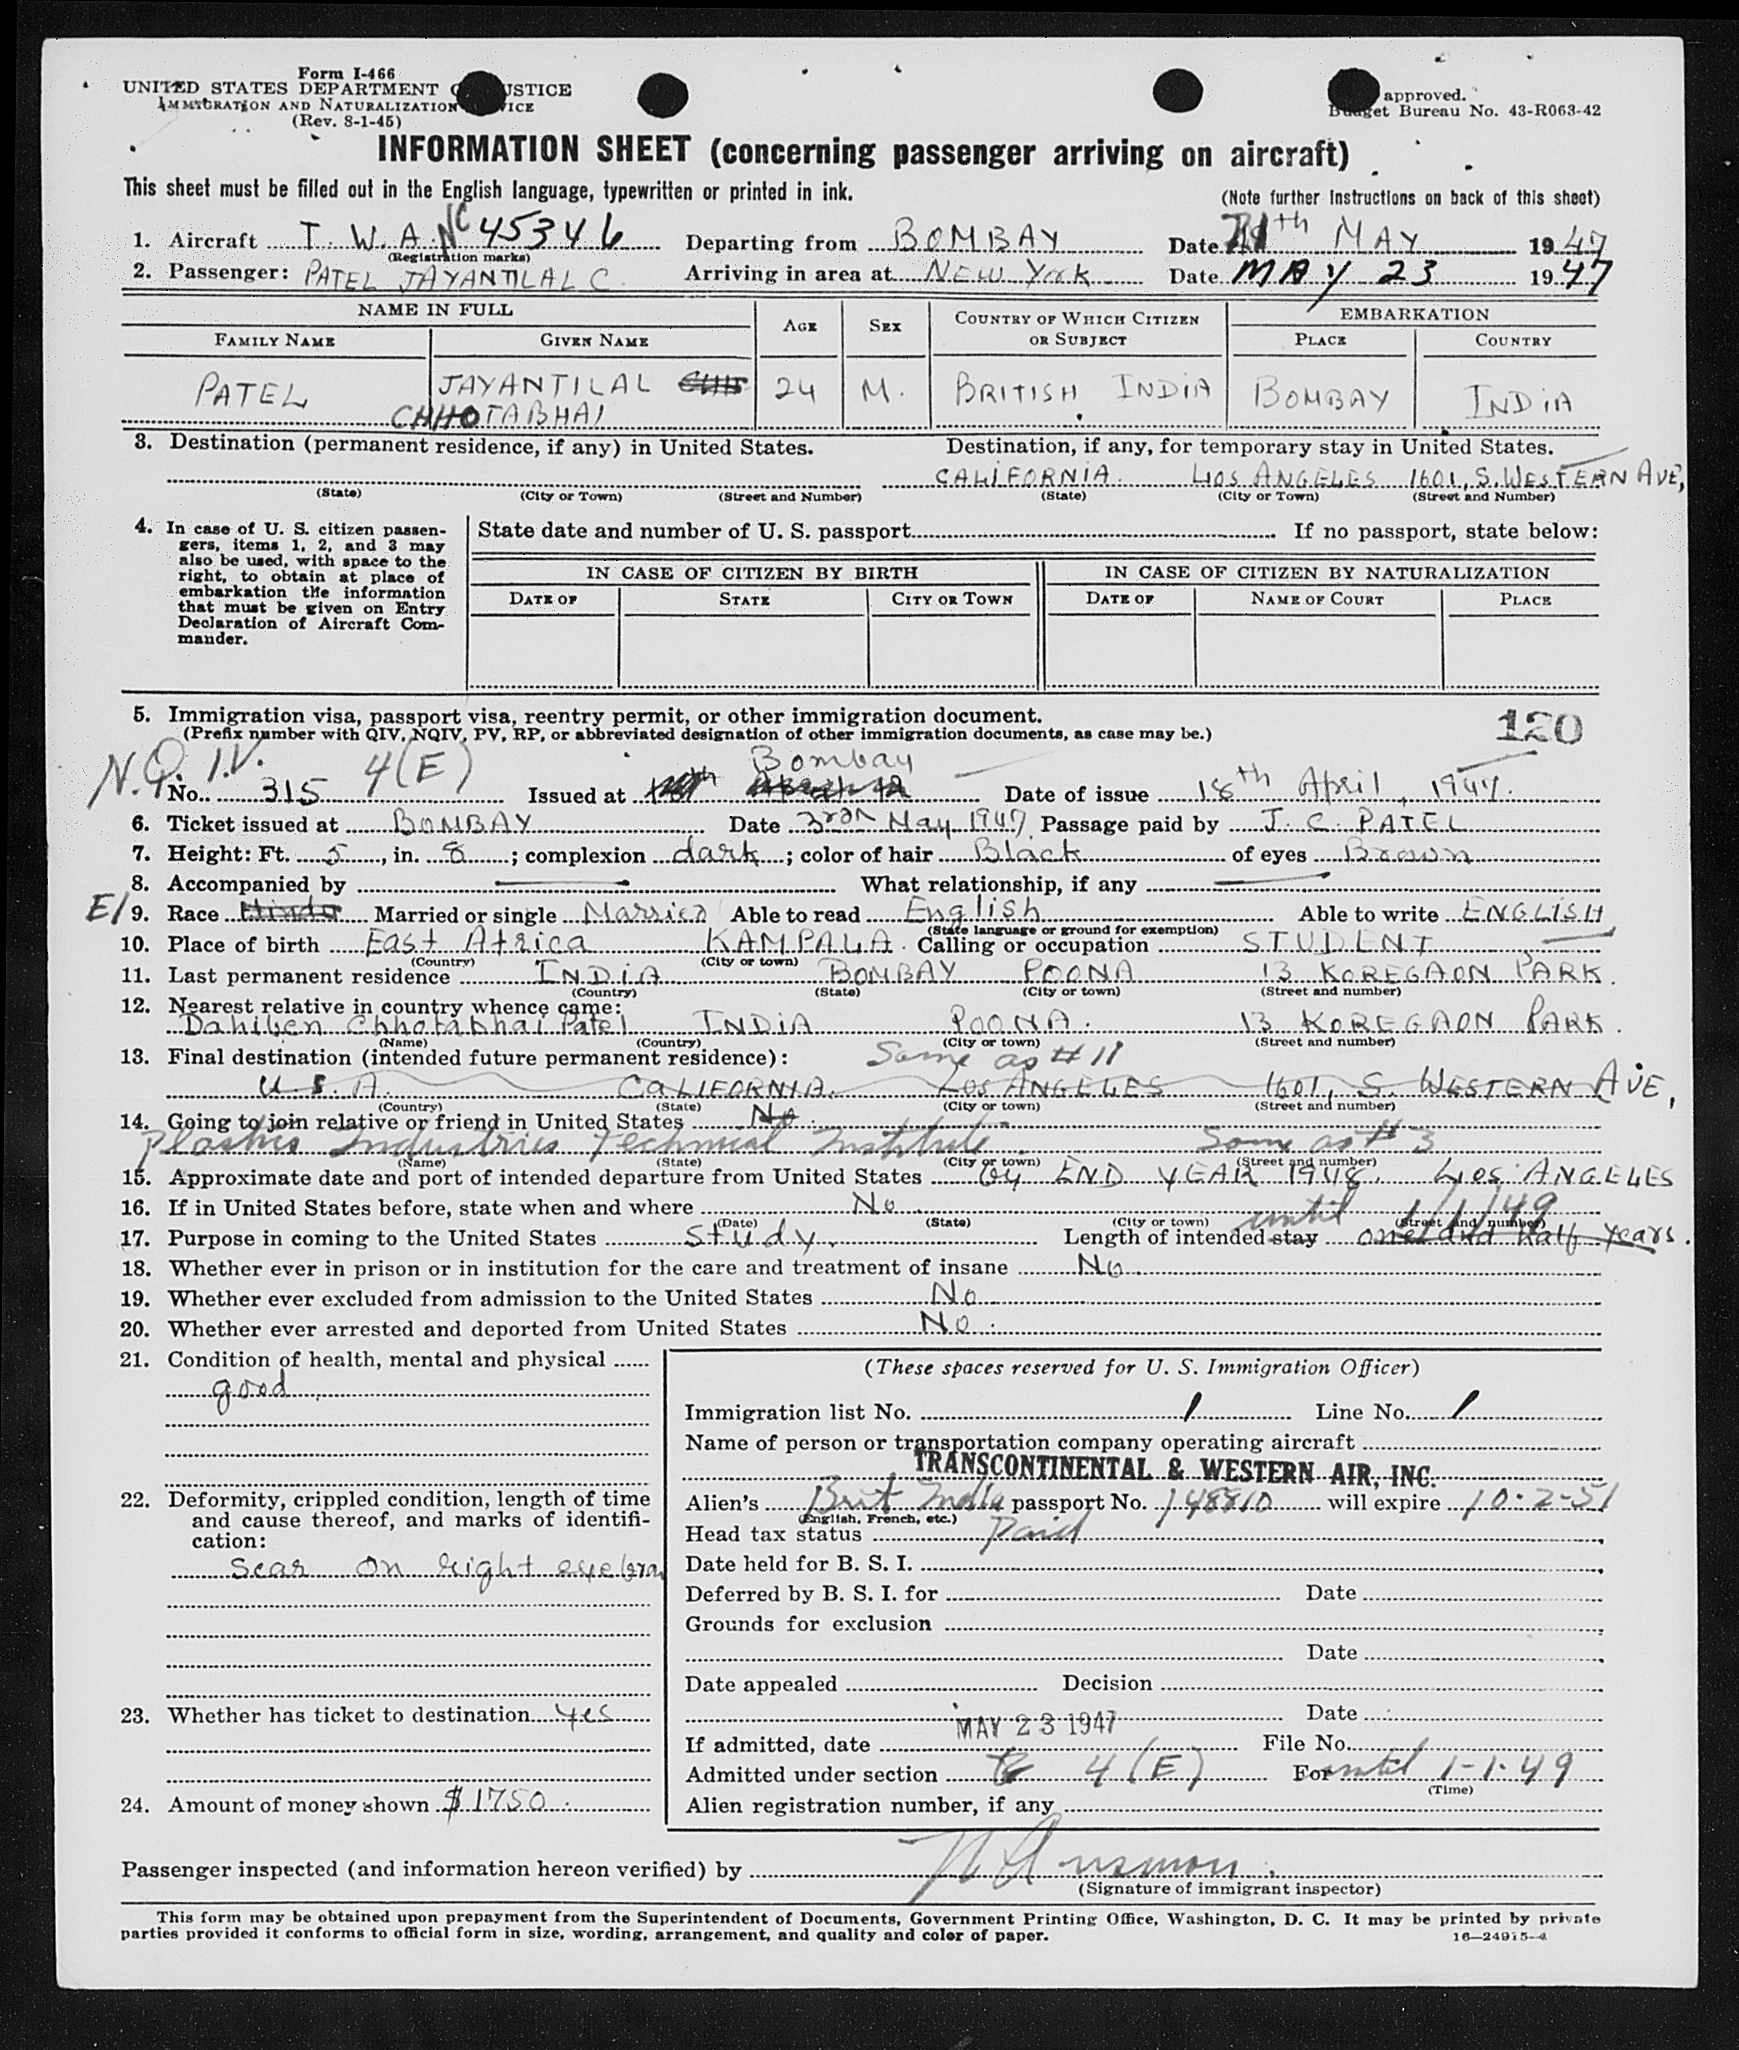 Form I-466
UNITED STATES DEPARTMENT USTICE
IMMIGRATION AND NATURALIZATION VICE
(Rev. 8-1-45)
approved.
Budget Bureau No. 43-R063-42
INFORMATION SHEET (concerning passenger arriving on aircraft)
This sheet must be filled out in the English language, typewritten or printed in ink. (Note further instructions on back of this sheet)
1. Aircraft T. W. A. NC 45346 Departing from BOMBAY Date MAY 1947
(Registration marks)
2. Passenger: PATEL JAYANTILAL C. Arriving in area at NEW YORK Date MAY 23 1947
NAME IN FULL AGE SEX COUNTRY OF WHICH CITIZEN OR SUBJECT EMBARKATION
FAMILY NAME GIVEN NAME PLACE COUNTRY
PATEL JAYANTILAL CHHOTABHAI 24 M. BRITISH INDIA BOMBAY INDIA
3. Destination (permanent residence, if any) in United States. Destination, if any, for temporary stay in United States.
CALIFORNIA. LOS ANGELES 1601, S. WESTERN AVE,
(State) (City or Town) (Street and Number) (State) (City or Town) (Street and Number)
4. In case of U. S. citizen passen-
gers, items 1, 2, and 3 may
also be used, with space to the
right, to obtain at place of
embarkation the information
that must be given on Entry
Declaration of Aircraft Com-
mander.
State date and number of U. S. passport If no passport, state below:
IN CASE OF CITIZEN BY BIRTH IN CASE OF CITIZEN BY NATURALIZATION
DATE OF STATE CITY OR TOWN DATE OF NAME OF COURT PLACE
5. Immigration visa, passport visa, reentry permit, or other immigration document.
(Prefix number with QIV, NQIV, PV, RP, or abbreviated designation of other immigration documents, as case may be.)
120
N.Q.I.V. 4(E) Bombay
No. 315 Issued at Date of issue 18th April, 1947.
6. Ticket issued at BOMBAY Date 3rd May 1947 Passage paid by J. C. PATEL
7. Height: Ft. 5, in. 8; complexion dark; color of hair Black of eyes Brown
8. Accompanied by What relationship, if any
E/ 9. Race Hindu Married or single Married Able to read English Able to write ENGLISH
(State language or ground for exemption)
10. Place of birth East Africa KAMPALA. Calling or occupation STUDENT
(Country) (City or town)
11. Last permanent residence INDIA BOMBAY POONA 13 KOREGAON PARK.
(Country) (State) (City or town) (Street and number)
12. Nearest relative in country whence came:
Dahiben Chhotabhai Patel INDIA POONA. 13 KOREGAON PARK.
(Name) (Country) (City or town) (Street and number)
13. Final destination (intended future permanent residence): Same as # 11
U. S. A. CALIFORNIA. LOS ANGELES 1601, S. WESTERN AVE,
(Country) (State) (City or town) (Street and number)
14. Going to join relative or friend in United States No
Plastics Industries Technical Institute. Same as # 3
(Name) (State) (City or town) (Street and number)
15. Approximate date and port of intended departure from United States by END YEAR 1948. LOS ANGELES
16. If in United States before, state when and where No.
(Date) (State) (City or town) (Street and number)
until 1/1/49
17. Purpose in coming to the United States Study. Length of intended stay one and half years.
18. Whether ever in prison or in institution for the care and treatment of insane No.
19. Whether ever excluded from admission to the United States No
20. Whether ever arrested and deported from United States No.
21. Condition of health, mental and physical
good.
22. Deformity, crippled condition, length of time
and cause thereof, and marks of identifi-
cation:
Scar on right eyebrow
23. Whether has ticket to destination Yes
24. Amount of money shown $1750.
(These spaces reserved for U. S. Immigration Officer)
Immigration list No. 1 Line No. 1
Name of person or transportation company operating aircraft
TRANSCONTINENTAL & WESTERN AIR, INC.
Alien's Brit India passport No. 148810 will expire 10-2-51
(English, French, etc.)
Head tax status Paid
Date held for B. S. I.
Deferred by B. S. I. for Date
Grounds for exclusion
Date
Date appealed Decision
Date
If admitted, date MAY 23 1947 File No.
Admitted under section 4(E) For until 1-1-49
(Time)
Alien registration number, if any
Passenger inspected (and information hereon verified) by
(Signature of immigrant inspector)
This form may be obtained upon prepayment from the Superintendent of Documents, Government Printing Office, Washington, D. C. It may be printed by private
parties provided it conforms to official form in size, wording, arrangement, and quality and color of paper.
16—24915-4